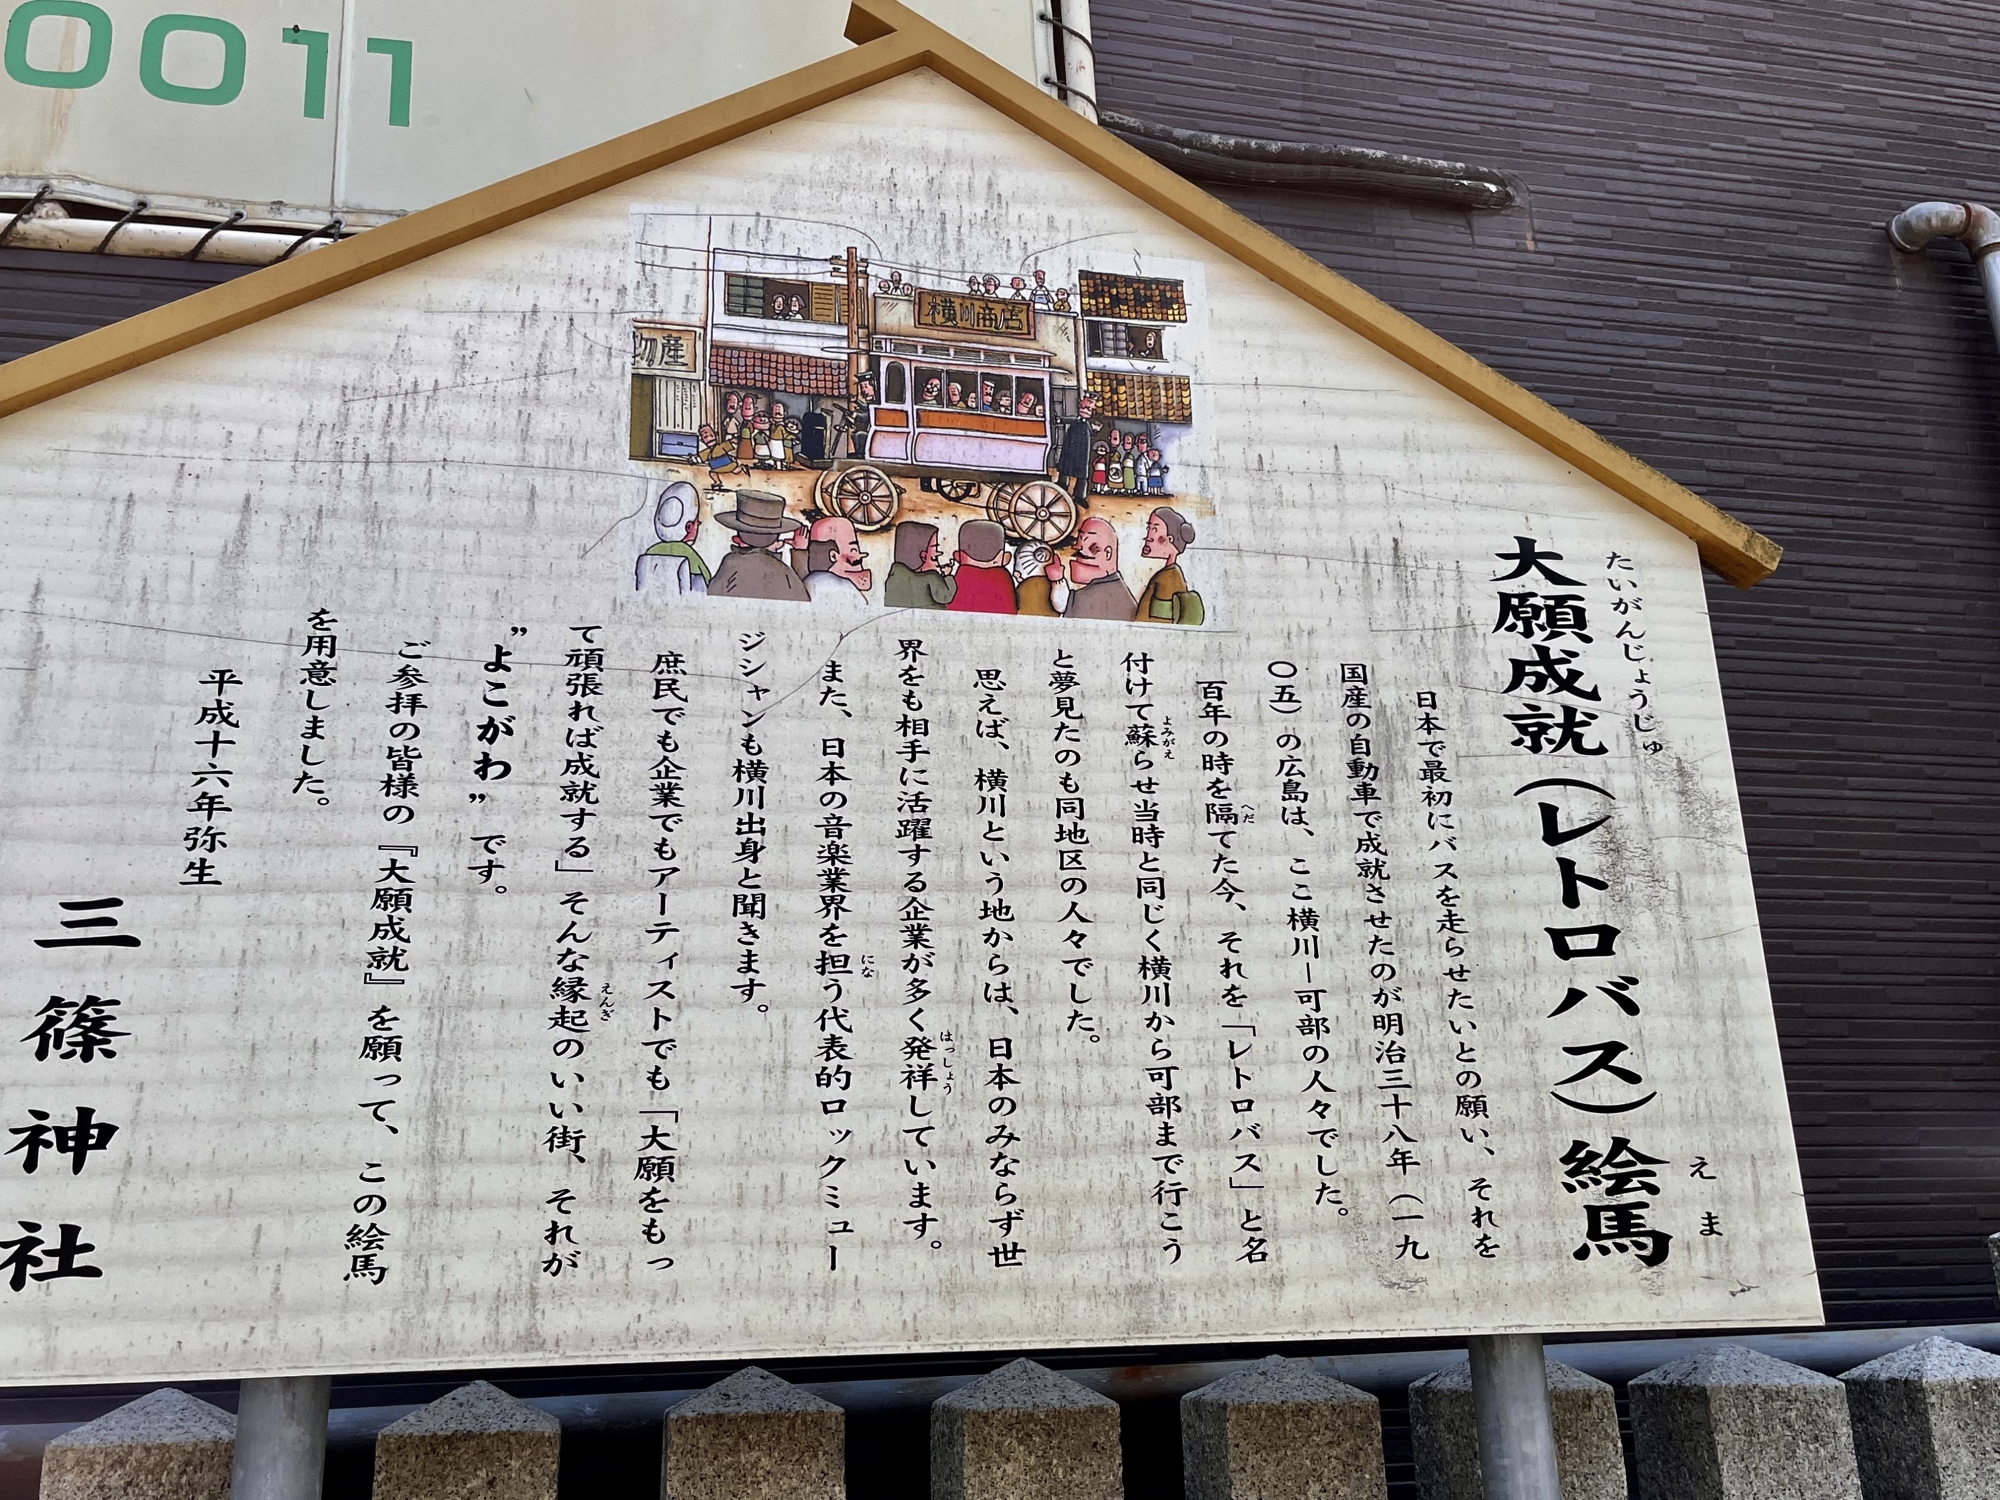 0011
横川商店
物産
たいがんじょうじゅ
大願成就(レトロバス)絵馬
えま
日本で最初にバスを走らせたいとの願い、それを
国産の自動車で成就させたのが明治三十八年(一九
〇五)の広島は、ここ横川ー可部の人々でした。
百年の時を隔てた今、それを「レトロバス」と名
へだ
付けて蘇らせ当時と同じく横川から可部まで行こう
よみがえ
と夢見たのも同地区の人々でした。
思えば、横川という地からは、日本のみならず世
界をも相手に活躍する企業が多く発祥しています。
はっしょう
また、日本の音楽業界を担う代表的ロックミュー
にな
ジシャンも横川出身と聞きます。
庶民でも企業でもアーティストでも「大願をもっ
て頑張れば成就する」そんな縁起のいい街、それが
えんぎ
”よこがわ”です。
ご参拝の皆様の『大願成就』を願って、この絵馬
を用意しました。
平成十六年弥生
三篠神社